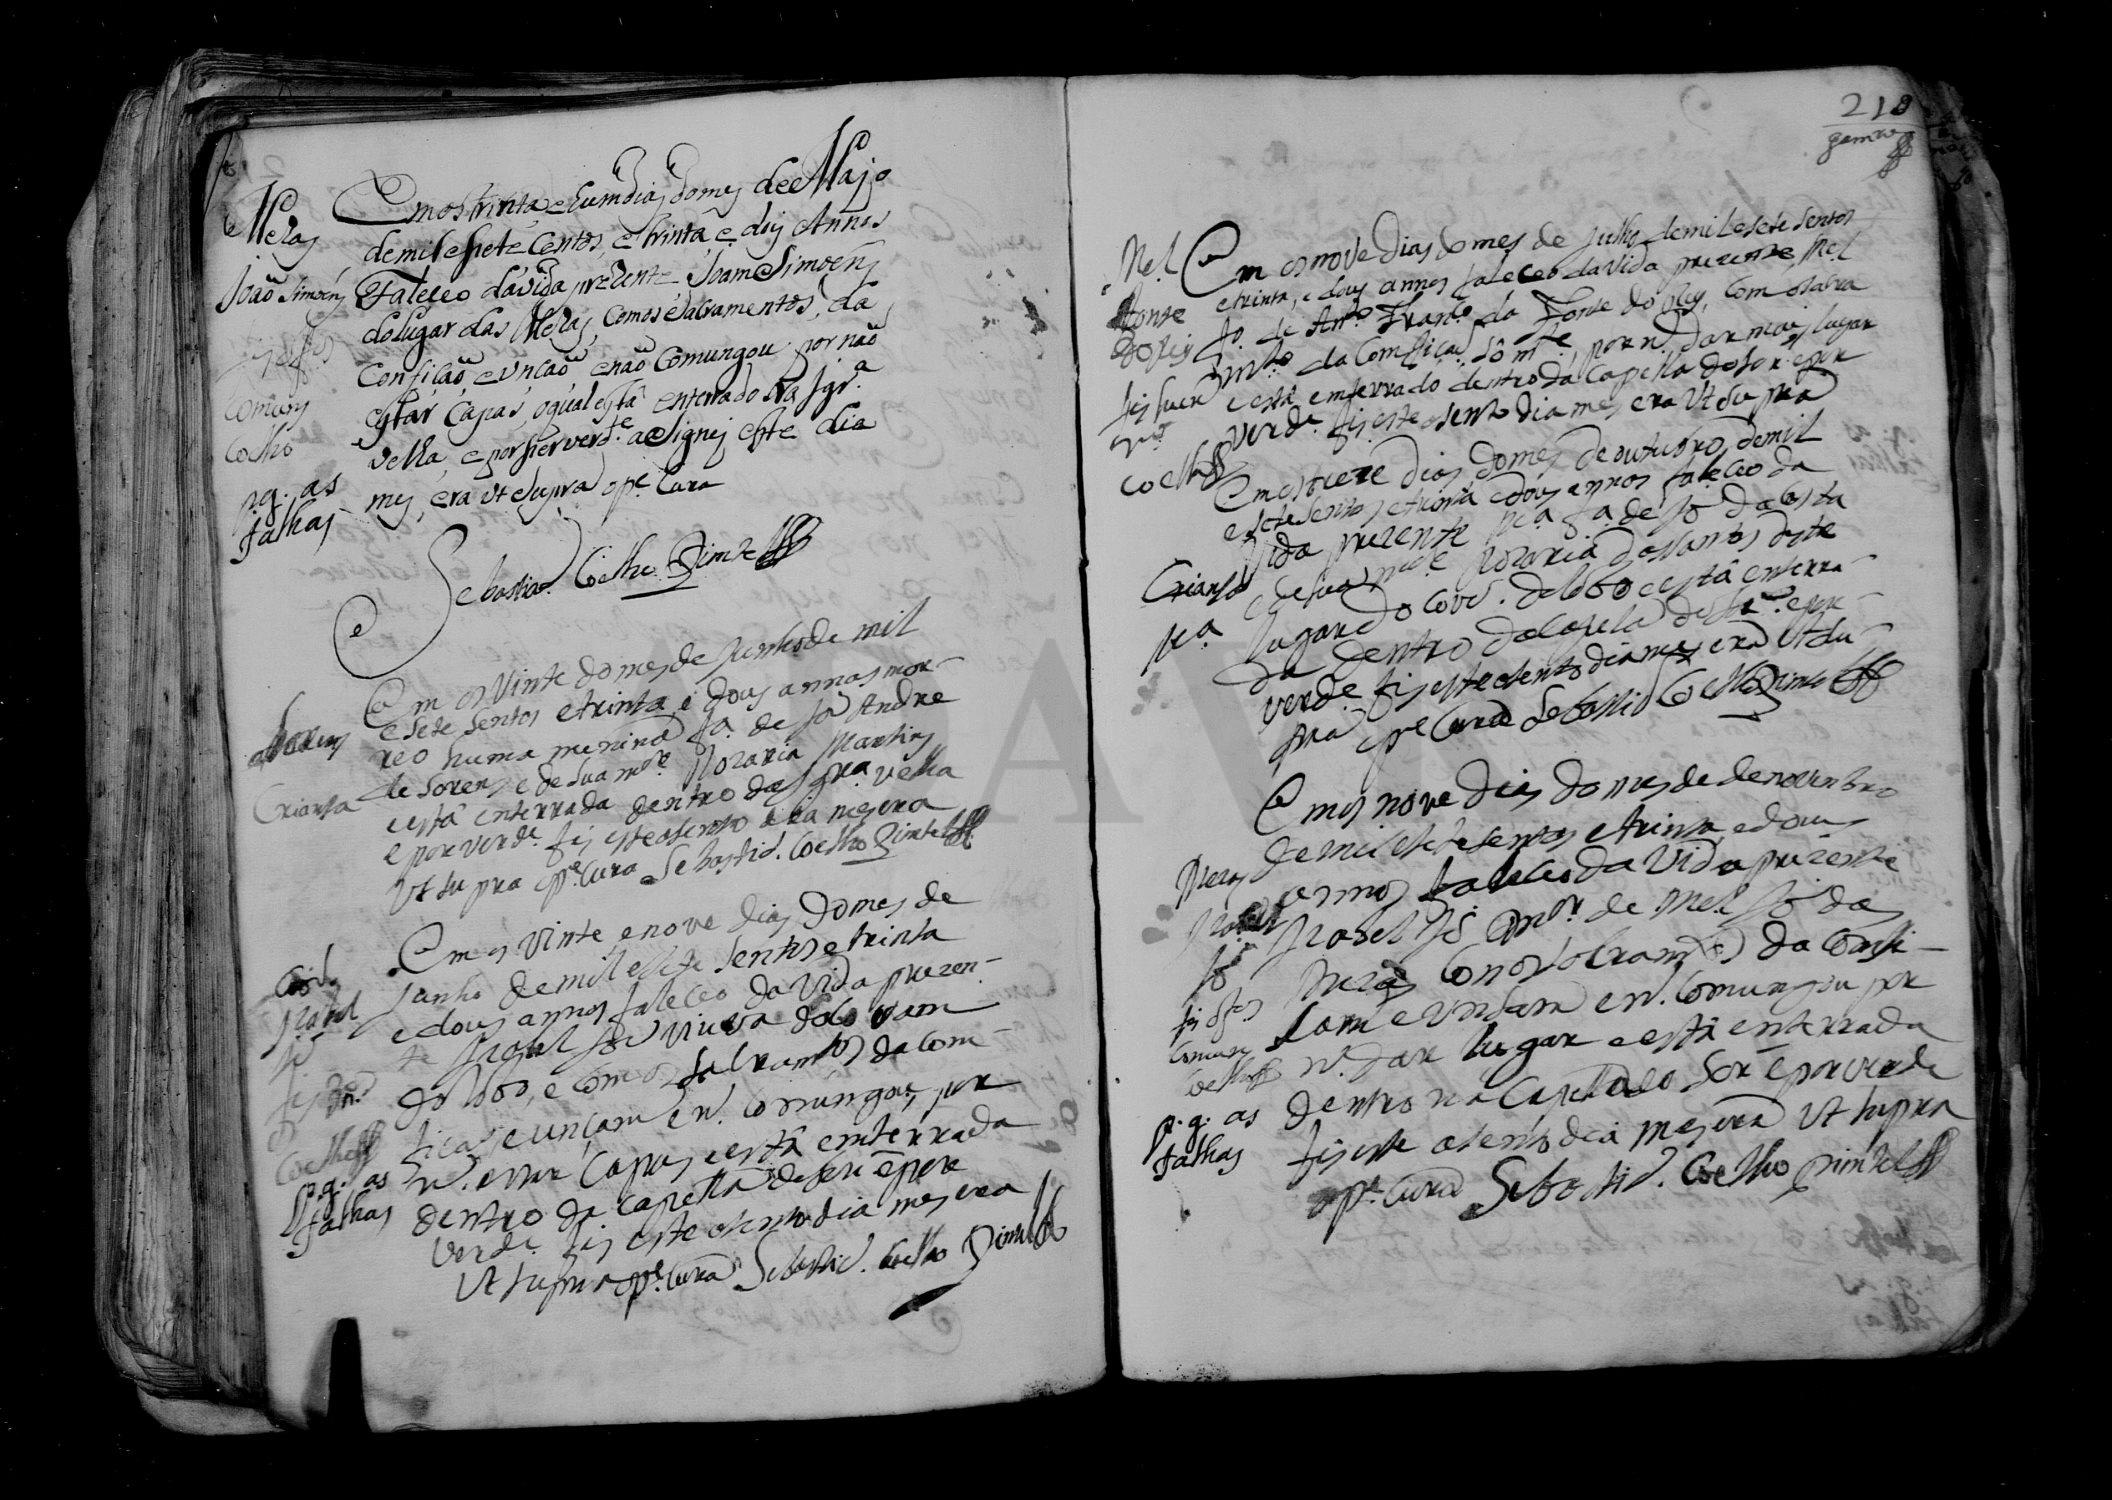 Mezas
João Simoens
fis of.os
Comum
Coelho
p.g. as
falhas
Em os trinta e hum dias do mes de Majo
de mil e sete Centos, e trinta e dois Annos
Faleceo da vida prezente Joam Simoens
do lugar das Mezas, Com os Sacramentos, da
Confição, e Vnção e não Comungou por não
estar Capas, o qual está enterrado na Igr.ª
velha, e por ser verd.e aSignej este dia
mes, era ut Supra o p.e Cura
Sebastião Coelho Pimtel
Criansa
Em os Vinte do mes de Junho de mil
e sete sentos e trinta e dous annos mor-
reo huma menina fa. de Jo. Andre
de Soren, e de sua m.er Nozaria Martins
está enterrada dentro da Igra velha
e por verd.e fis este asento dia mes era
Vt supra o p.e Cura Sebastiã. Coelho Pimtel
Izabel
Jo
Coelho
p.g. as
falhas
Em os Vinte e nove dias do mes de
Junho de mil e sete sentos e trinta
e dous annos faleceo da Vida prezen-
te Izabel Jo. Viuva do Covam
do lobo, e com os sacramtos da Com-
fiçaõ e unçam e n. Comungou, por
n. estar Capas e está emterrada
dentro da Capella de Sori e por
verd.e fis este asento dia mes era
Vt supra o p.e Cura Sebastiã. Coelho Pimtel
218
Mel
Fonte
Coelho
Em os nove dias do mes de Julho de mil e sete sentos
e trinta, e dous annos faleceo da Vida prezente Mel
fo. de Anto. Franco. da Fonte do
da Comfiçaõ sómte, por n. dar mais lugar
e está emterrado dentro da Capella de Sori e por
verd.e fis este asento dia mes era Vt Supra
Criansa
Em os treze dias do mes de outubro de mil
e sete sentos e trinta e dous annos faleceo da
Vida prezente fa. de Jo. da Costa
e de sua m.er Nozaria dos Santos deste
lugar do Cov. do lobo e está enterra-
da dentro da Capela de Sori e por
verd.e fis este asento dia mes era Vt Su-
pra o p.e Cura Sebastiã Coelho Pimtel
Mezas
Izabel
Jo
fis of.os
Comum
Coelho
p.g. as
falhas
Em os nove dias do mes de de novembro
de mil e sete sentos e trinta e dous
annos faleceo da Vida prezente
Izabel Jo. m.er de Mel Jo. das
Mezas Con os sacramtos da Confi-
sam e Vnsam e n. Comungou por
n. dar lugar e está enterrada
dentro na Capella do Sori e por verde
fis este asento dia mes era Vt supra
o p.e Cura Sebastiã. Coelho Pimtel